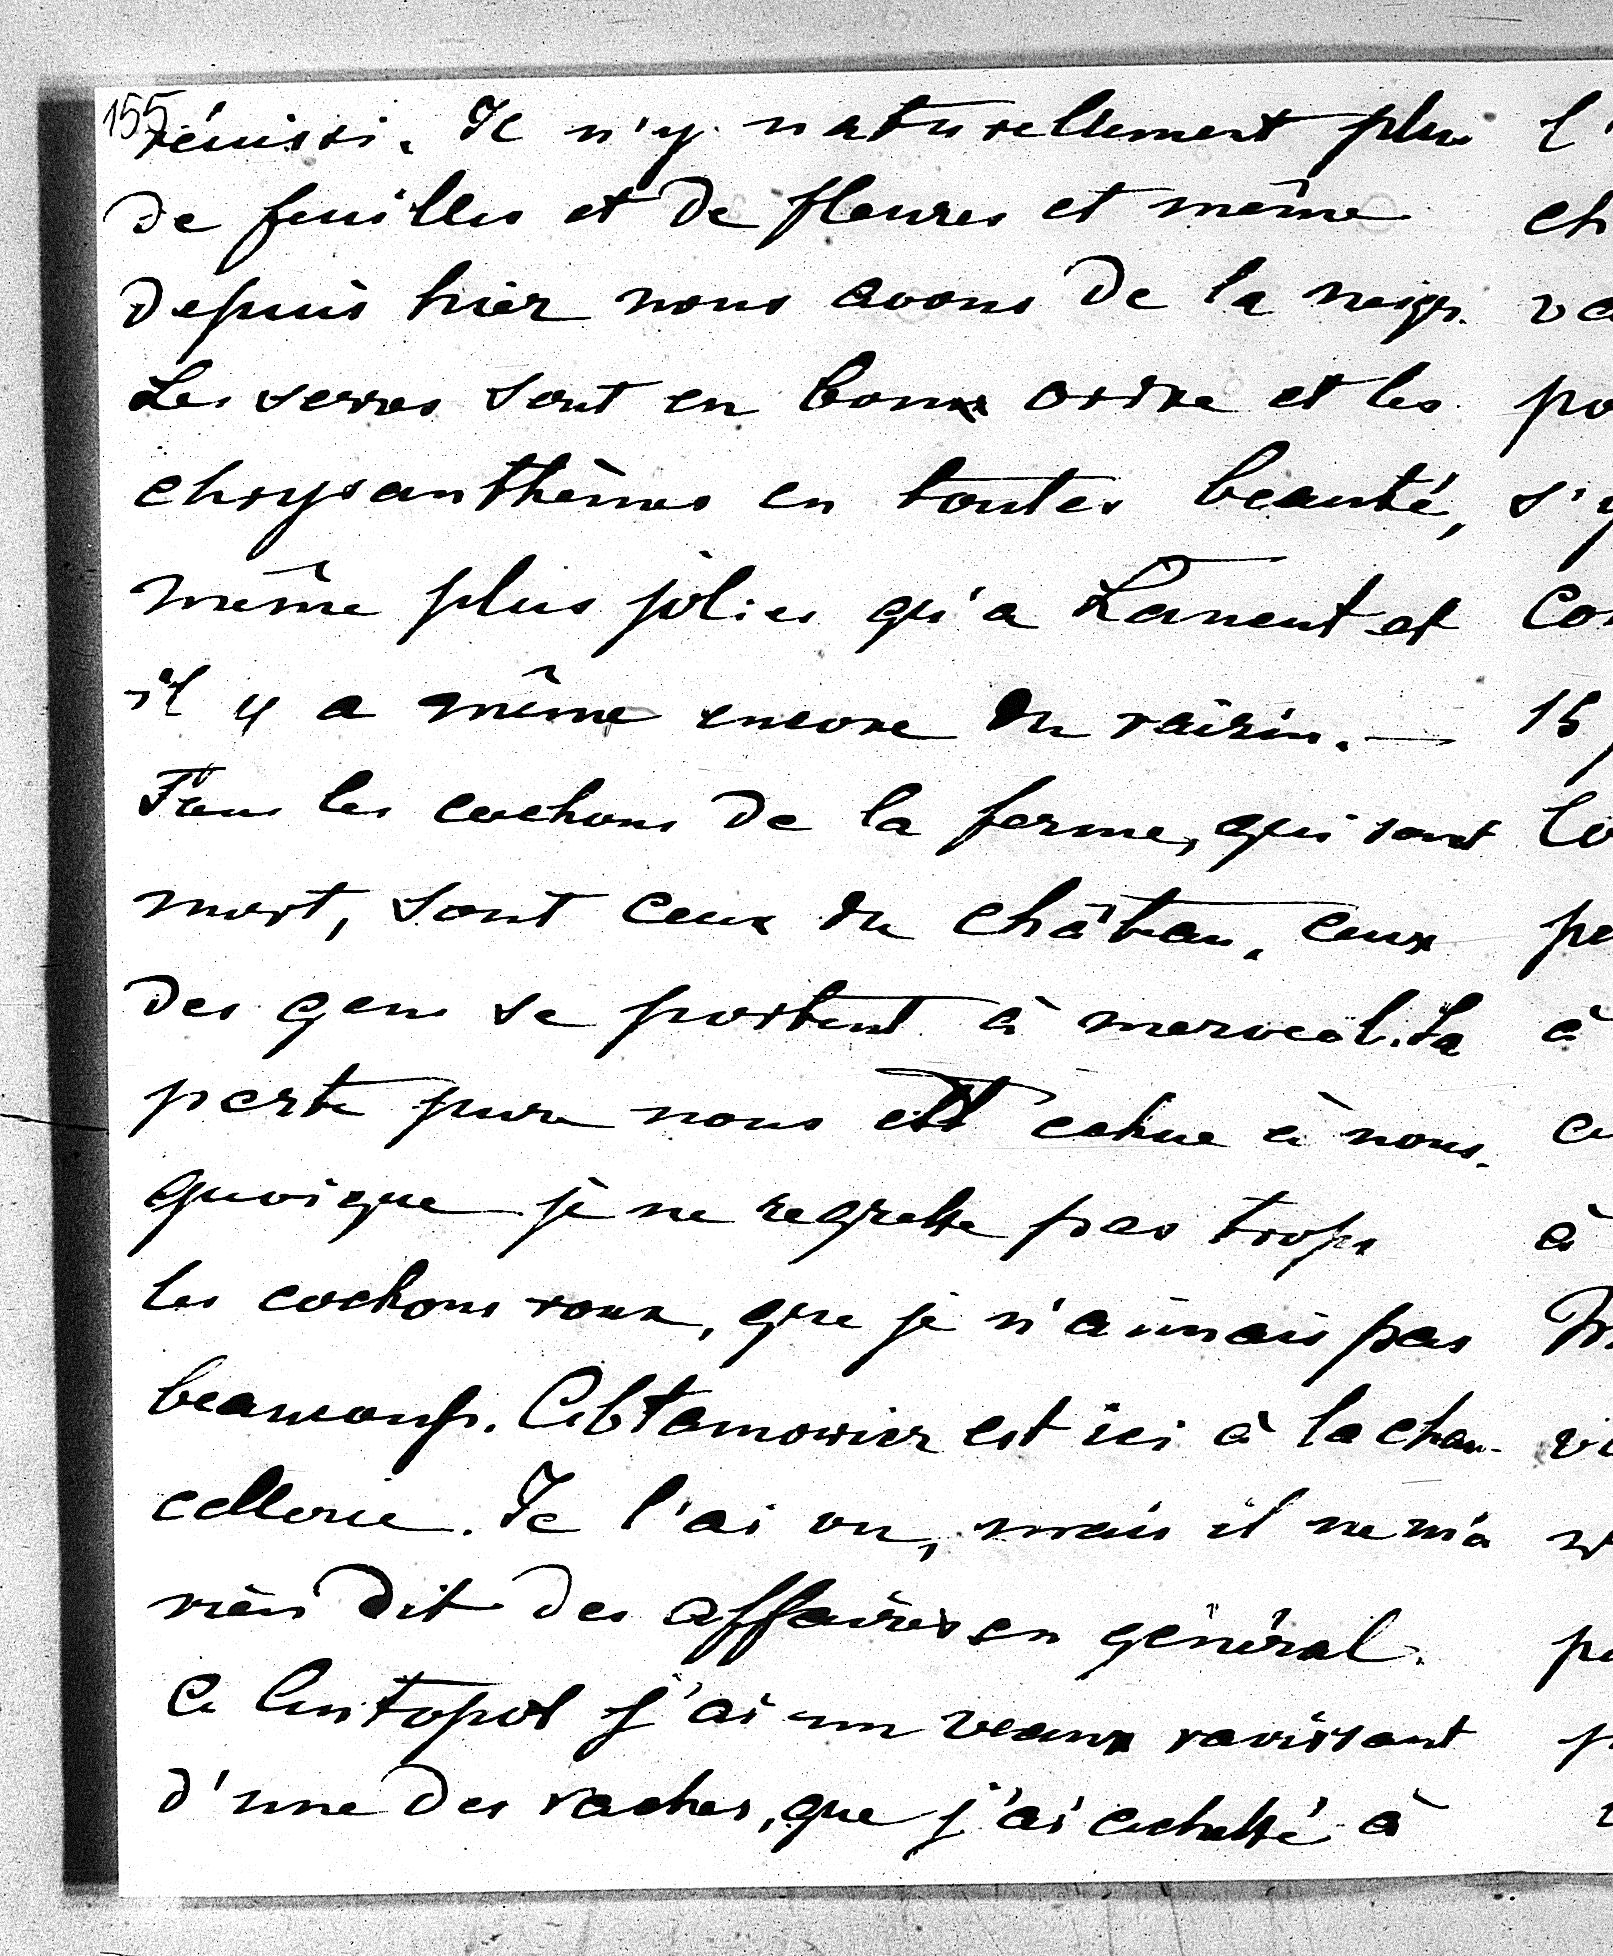 155
réuissi. Il n'y naturellement plus
de feuilles et de fleures et même
depuis hier nous avons de la neige.
Les serres sont en bonx ordre et les
chrysanthèmes en toutes beauté,
même plus jolies qu'a Lancut et
il y a même encore du raisin. —
Tous les cochons de la ferme, qui sont
mort, sont ceux du château, ceux
des gens se portent à merveil. La
perte pure nous est échue à nous.
quoique je ne regrette pas trops
les cochons roux, que je n'aimais pas
beaucoup. Abtamowicz est ici à la chan-
cellerie. Je l'ai vu, mais il ne m'a
rien dit des affaires en général.
A Antopol j'ai un veaux ravissant
d'une des vaches, que j'ai achetté à